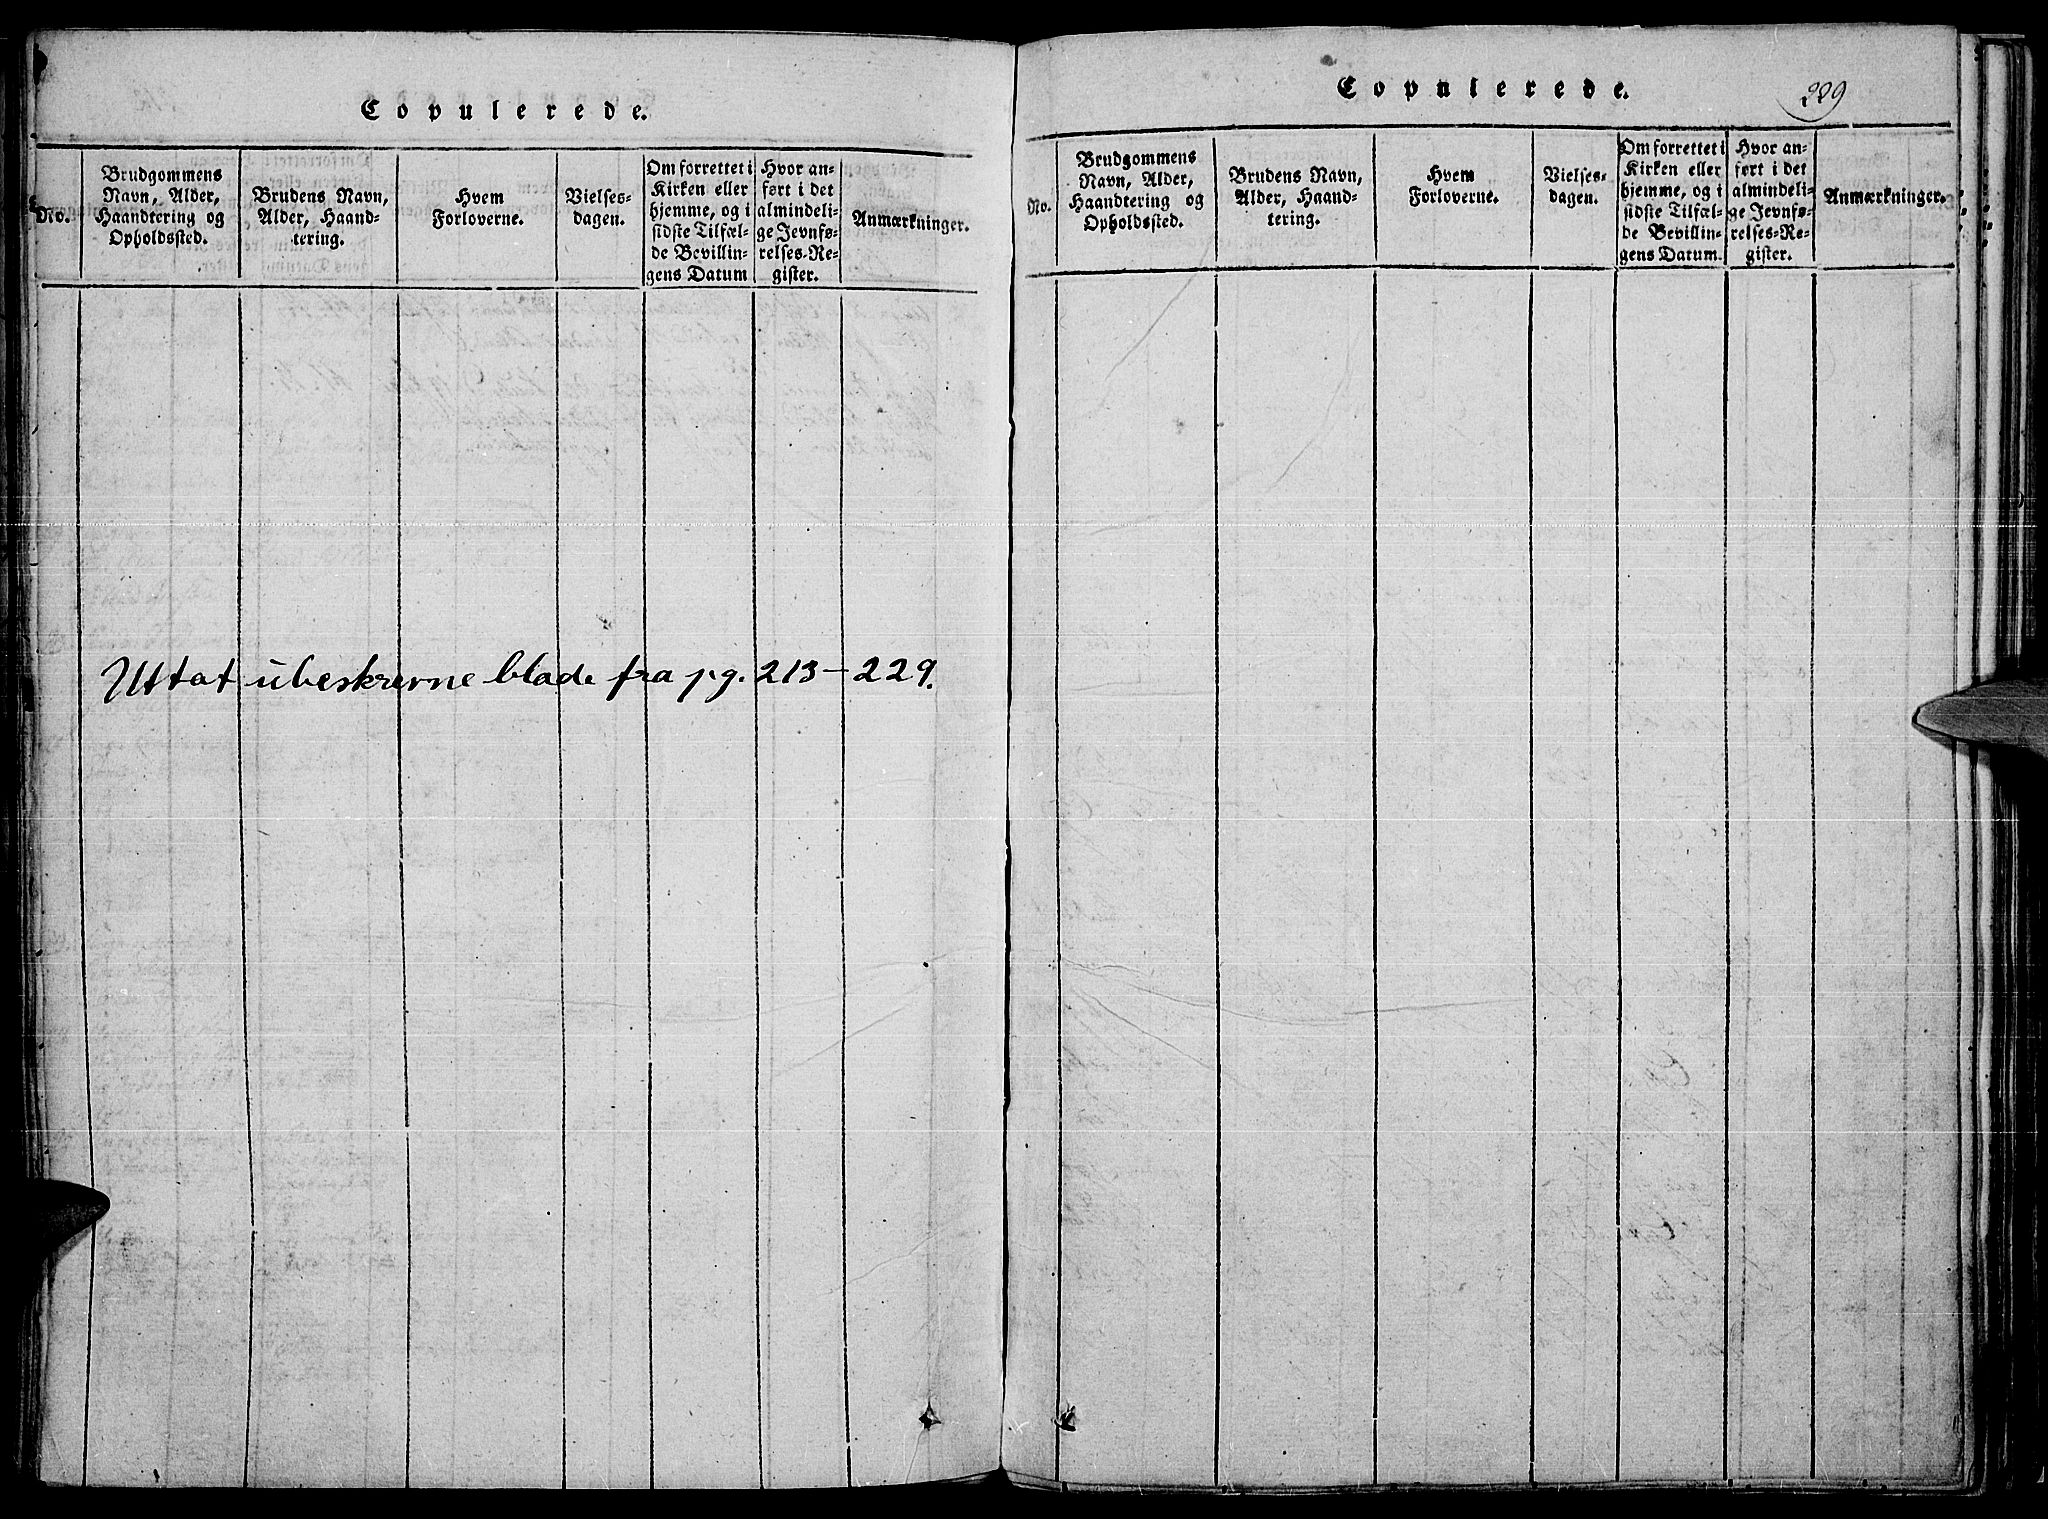 Copulerede.
No.
Brudgommens
Navn, Alder,
Haandtering og
Opholdssted.
Brudens Navn,
Alder, Haand-
tering.
Hvem
Forloverne.
Vielses-
dagen.
Om forrettet i
Kirken eller
hjemme, og i
sidste Tilfæl-
de Bevillin-
gens Datum
Hvor an-
ført i det
almindeli-
ge Jevnfø-
relses-Re-
gister.
Anmærkninger.
Uttat ubeskrevne blade fra pg. 213-229.
Copulerede.
229
No.
Brudgommens
Navn, Alder,
Haandtering og
Opholdssted.
Brudens Navn,
Alder, Haand-
tering.
Hvem
Forloverne.
Vielses-
dagen.
Om forrettet i
Kirken eller
hjemme, og i
sidste Tilfæl-
de Bevillin-
gens Datum.
Hvor an-
ført i det
almindeli-
ge Jevnfø-
relses-Re-
gister.
Anmærkninger.